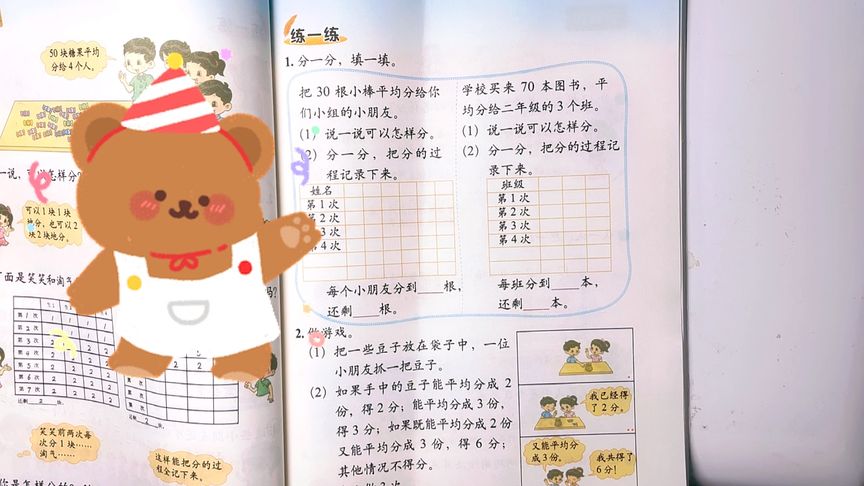 50块糖果平均
分给4个人。
可以1块1块
地分，也可以2
块2块地分。
第1次
第2次
第3次
第4次
第5次
第6次
第7次
还剩 2 块。
笑笑前两次每
次分1块……
淘气……
这样能把分的过
程全记下来。
练一练
1. 分一分，填一填。
把30根小棒平均分给你
们小组的小朋友。
(1) 说一说可以怎样分。
(2) 分一分，把分的过
程记录下来。
姓名
第1次
第2次
第3次
第4次
每个小朋友分到____根，
还剩____根。
学校买来70本图书，平
均分给二年级的3个班。
(1) 说一说可以怎样分。
(2) 分一分，把分的过程记
录下来。
班级
第1次
第2次
第3次
第4次
每班分到____本，
还剩____本。
2. 做游戏。
(1) 把一些豆子放在袋子中，一位
小朋友抓一把豆子。
(2) 如果手中的豆子能平均分成2
份，得2分；能平均分成3份，
得3分；如果既能平均分成2份
又能平均分成3份，得6分；
其他情况不得分。
我已经得
了2分。
又能平均分
成3份。
我共得了
6分！